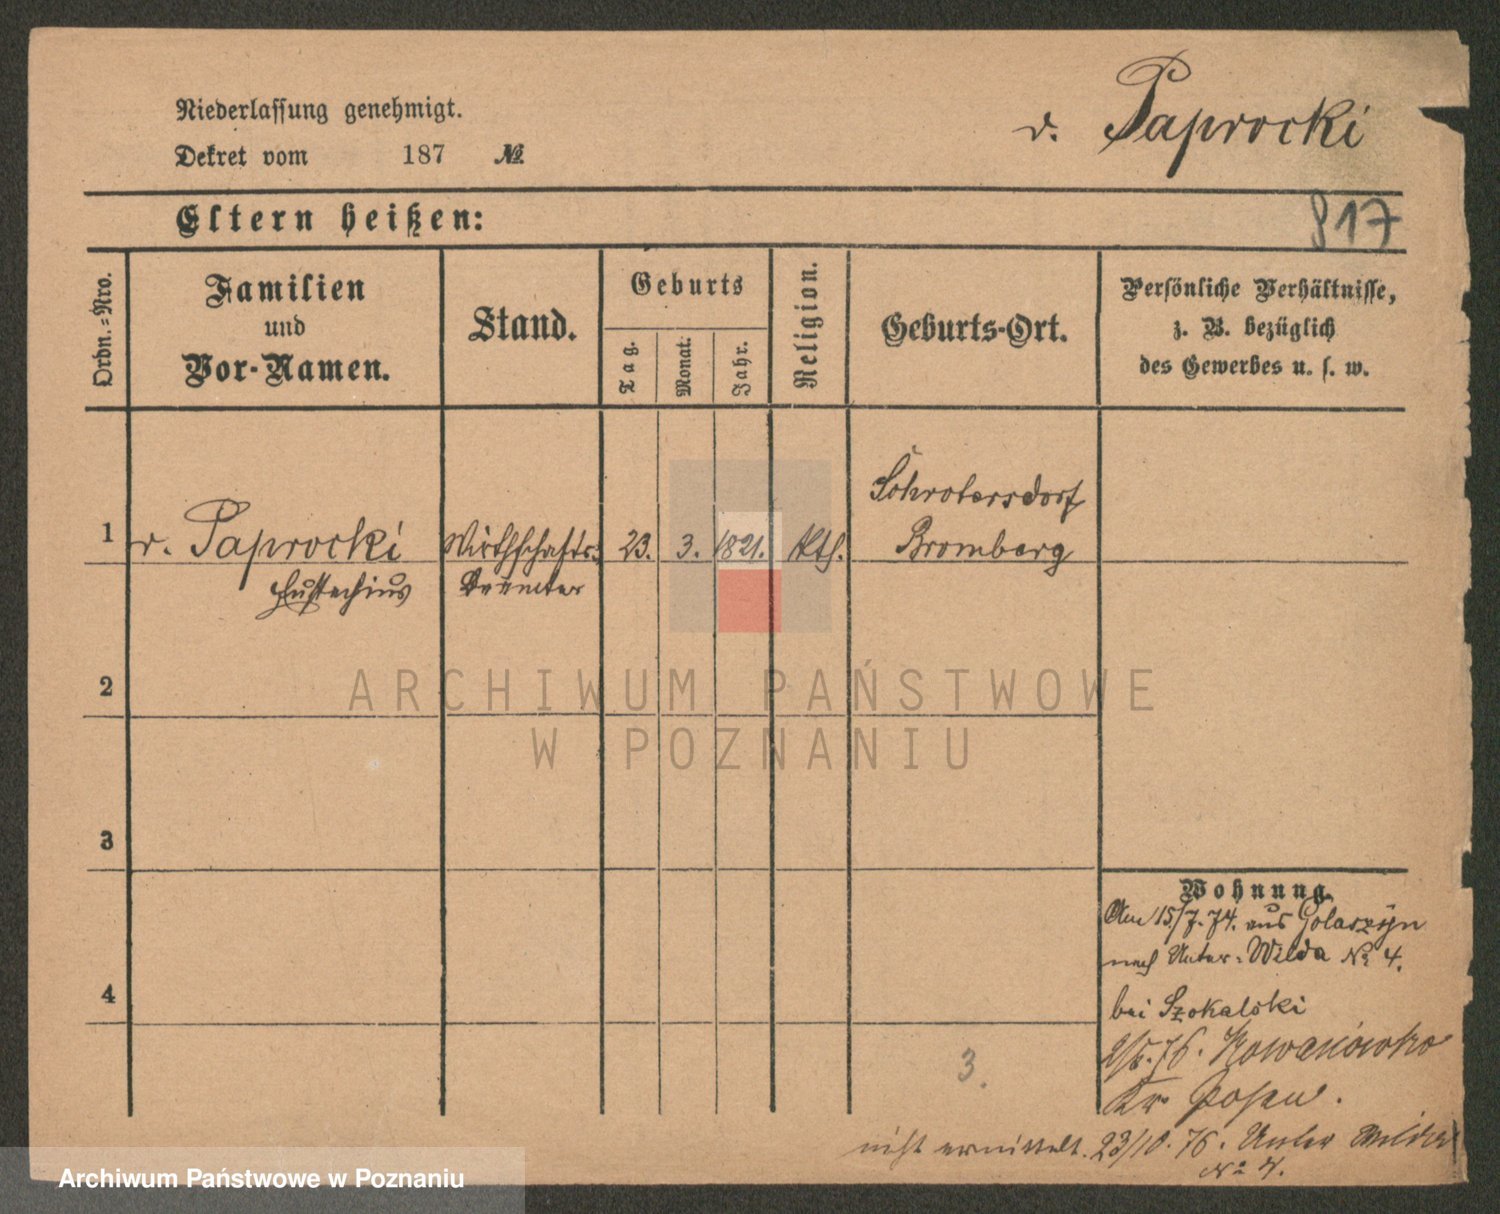 Niederlassung genehmigt.
v. Paprocki
Dekret vom 187 №
Eltern heißen:
817
Ordn.-Nro.
Familien
und
Vor-Namen.
Stand.
Geburts
Tag.
Monat.
Jahr.
Religion.
Geburts-Ort.
Persönliche Verhältnisse,
z. B. bezüglich
des Gewerbes u. s. w.
1 v. Paprocki Wirthschafts- 23. 3. 1821. kth. Schrotersdorf
Bromberg
Eustachius Beamter
2
3
4
Wohnung.
Am 15/7.74. aus Golaszyn
nach Unter-Wilda № 4.
bei Szokalski
76. Kowanówko
Kr. Posen.
3.
nicht ermittelt. 23/10.76. Unter Wilda
№ 4.
ARCHIWUM PAŃSTWOWE
W POZNANIU
Archiwum Państwowe w Poznaniu